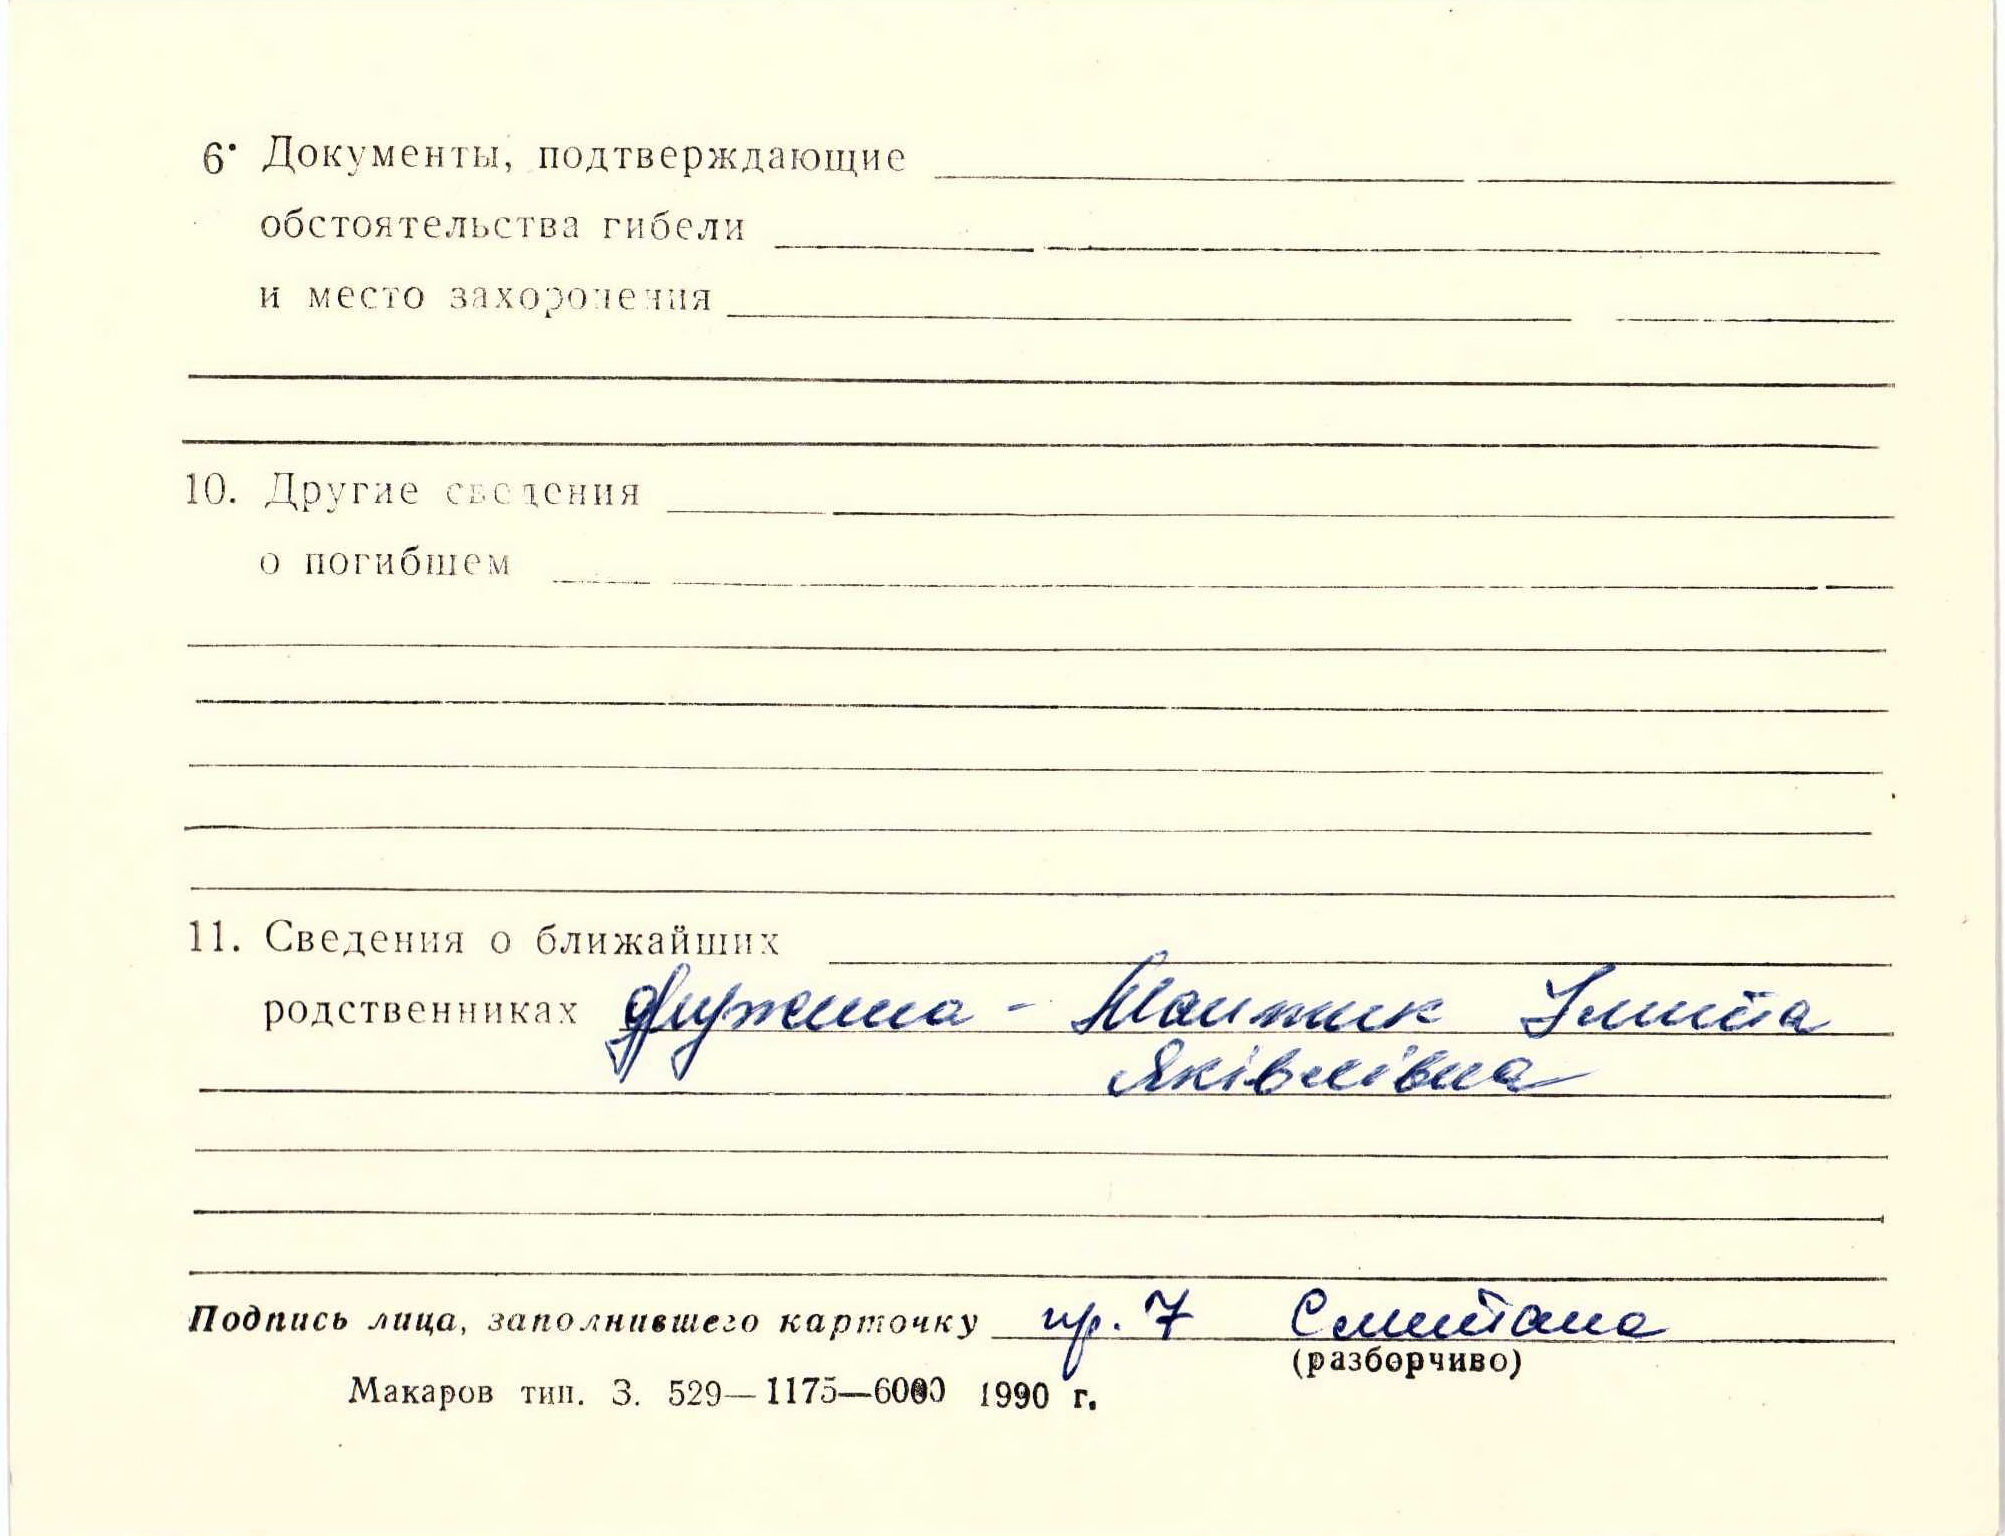 6. Документы, подтверждающие
обстоятельства гибели
и место захоронения
10. Другие сведения
о погибшем
11. Сведения о ближайших
родственниках дружина -
Яківлівна
Подпись лица, заполнившего карточку пр. 7 Сметана
(разборчиво)
Макаров тип. З. 529—1175—6000 1990 г.